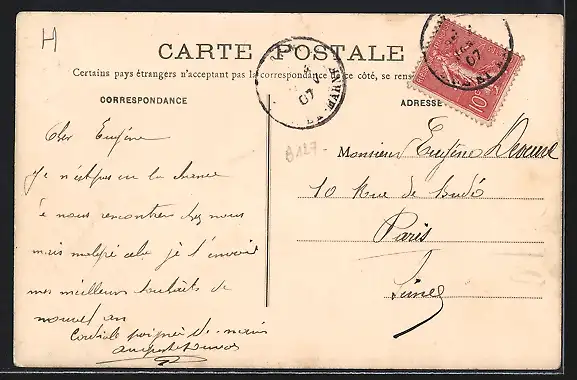 H
CARTE POSTALE
Certains pays étrangers n'acceptant pas la correspondance ce côté, se rens
CORRESPONDANCE
ADRESSE
Cher Eugène
Je n'ai pas eu la chance
de nous rencontrer chez nous
mais malgré cela je t'envoie
mes meilleurs souhaits de
nouvel an
Cordiale poignée de main
B127-
Monsieur Eugène
10 Rue de
Paris
Seine
07
07
10